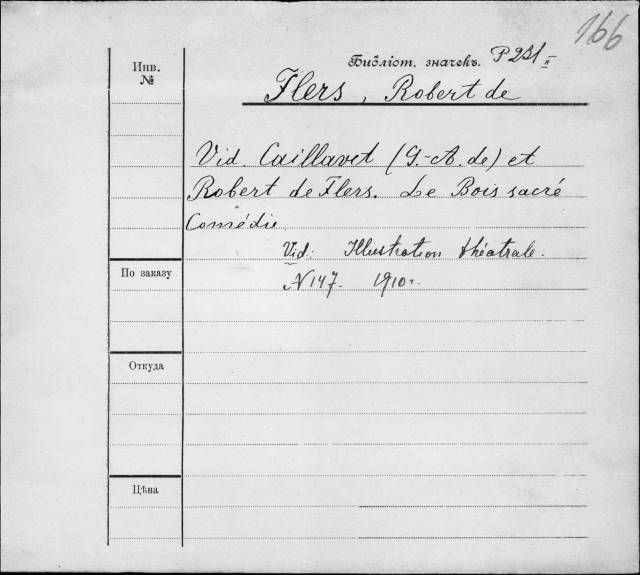 166
Библіот. значекъ. P 231 II
Инв.
№
Flers, Robert de
Vid. Caillavet (G.-A. de) et
Robert de Flers. Le Bois sacré
Comédie.
Vid. Illustration théatrale.
N 147. 1910.
По заказу
Откуда
Цѣна